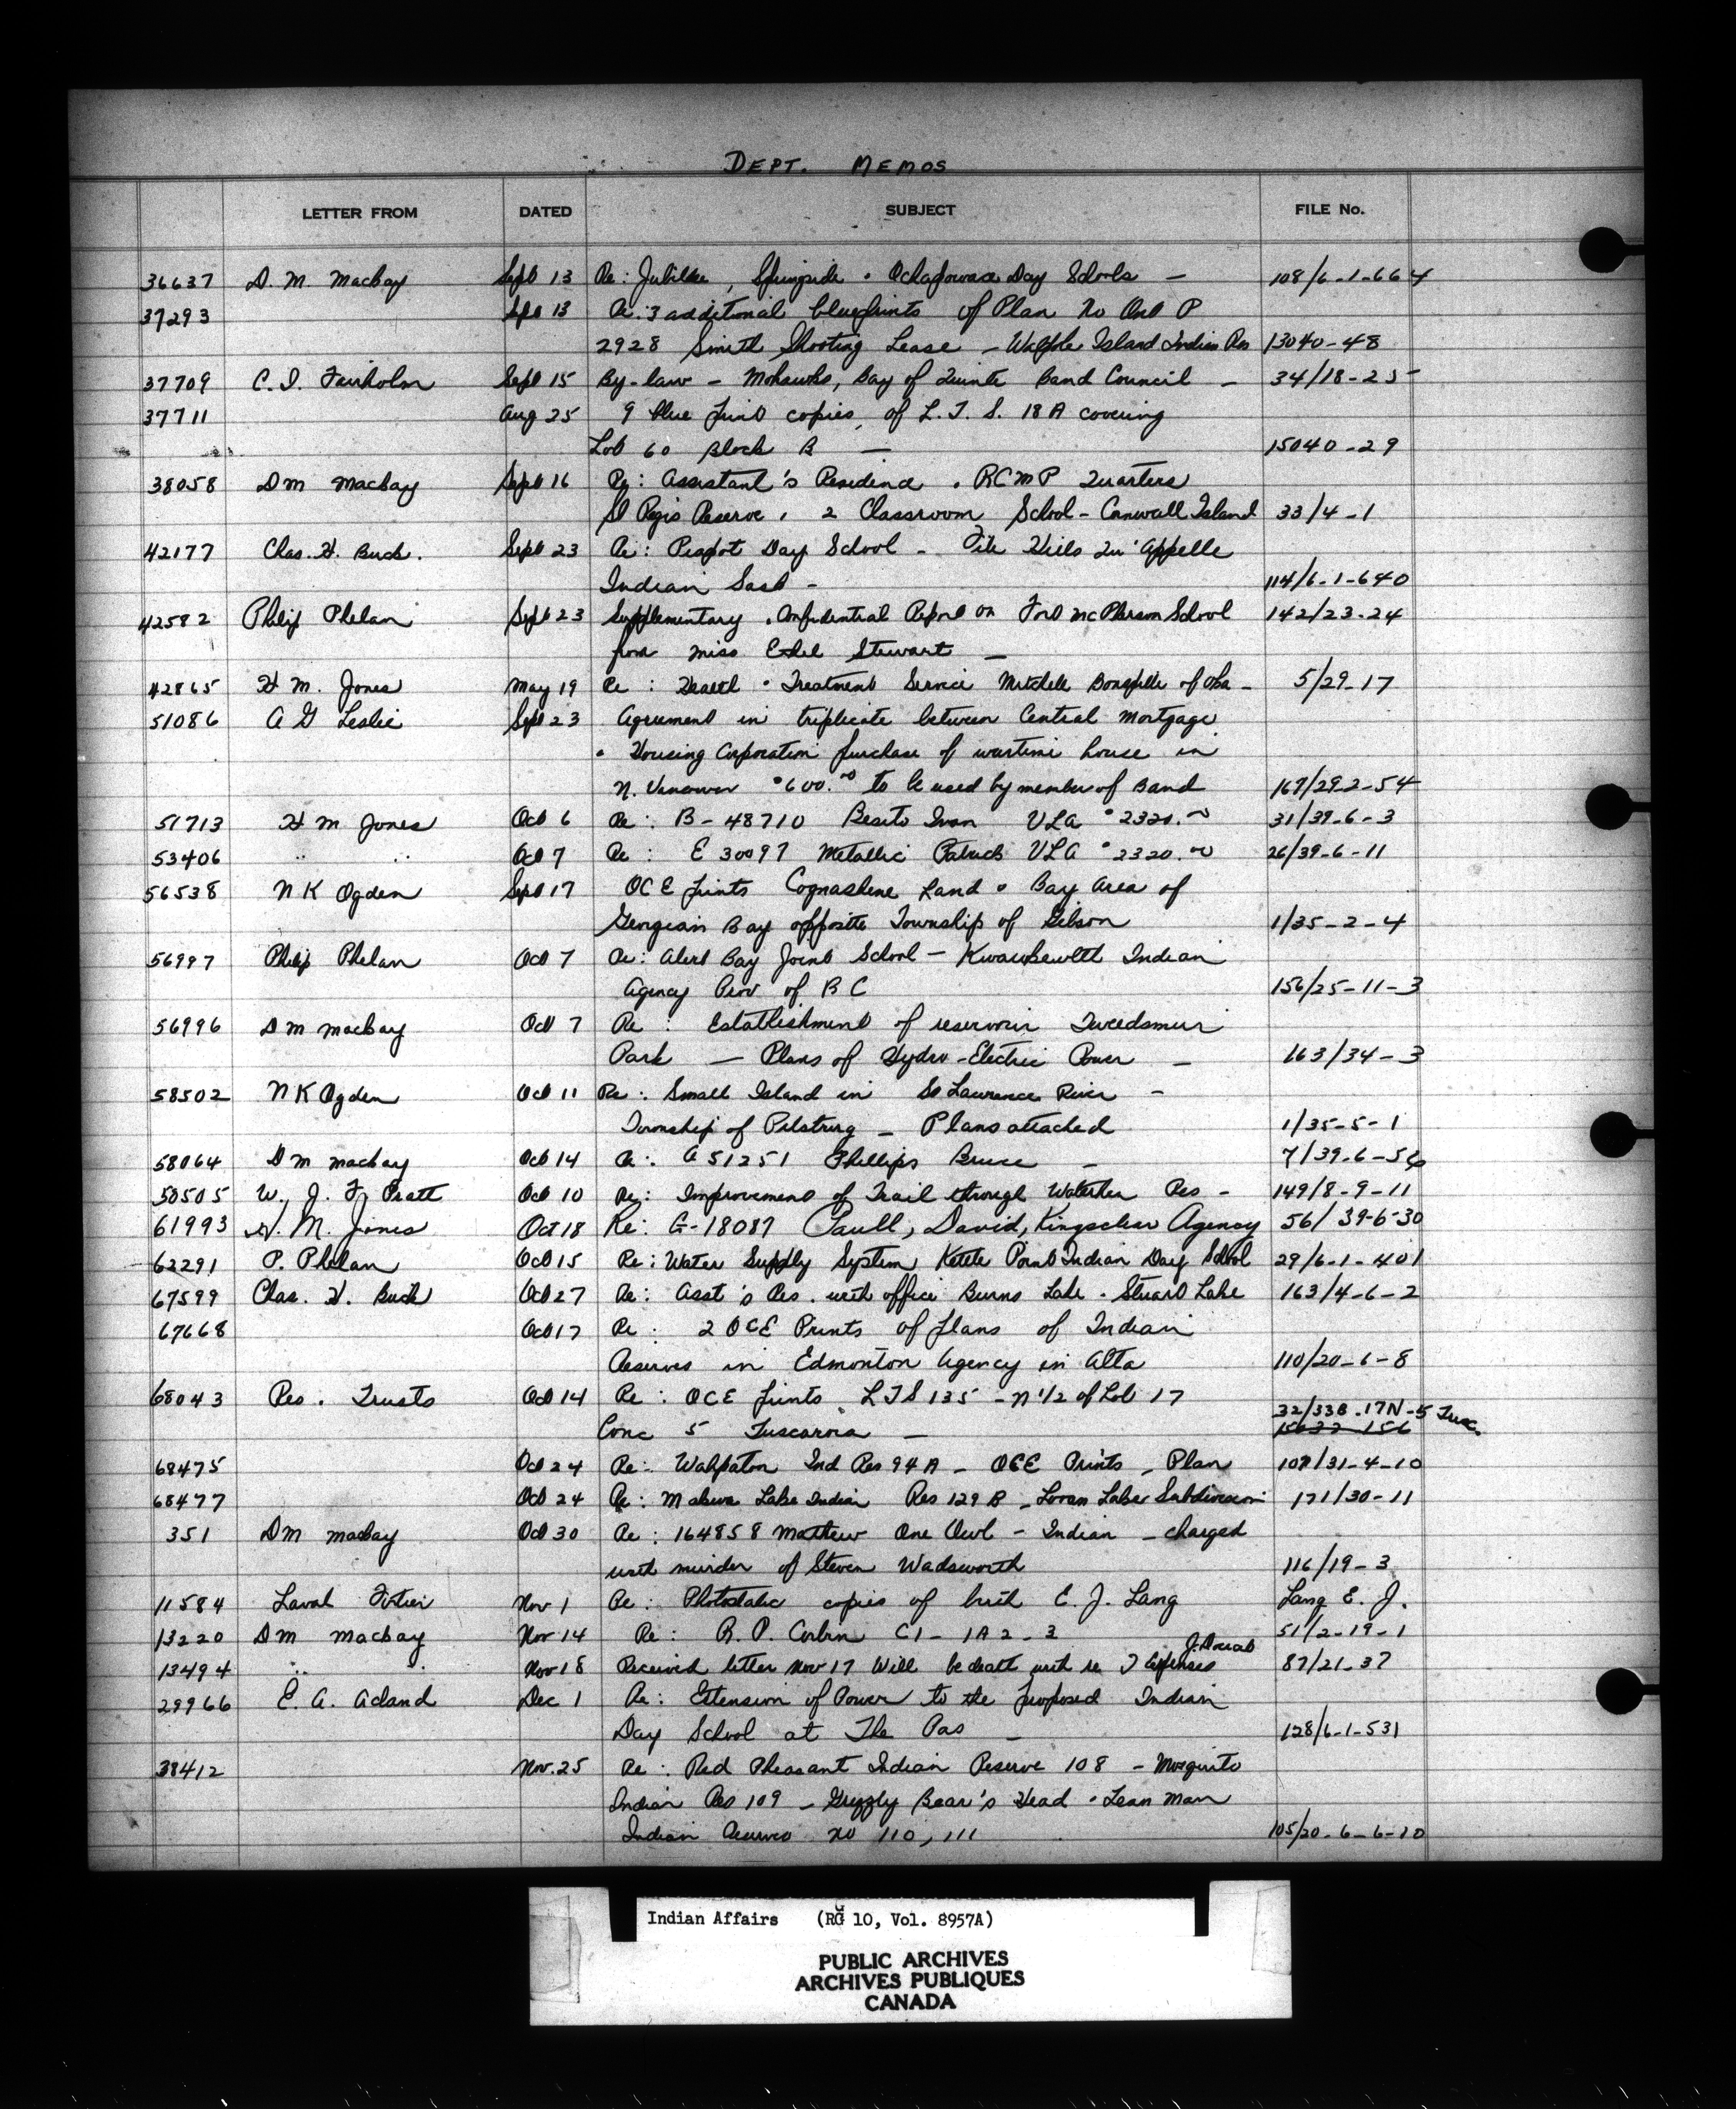 DEPT. MEMOS
LETTER FROM DATED SUBJECT FILE No.
36637 D. M. Mackay Sept 13 Re: Jubilee, Springside & Ochapowace Day Schools — 108/6-1-664
37293 Sept 13 Re: 3 additional blueprints of Plan No Ont P
2928 Smith Shooting Lease — Walpole Island Indian Res 13040-48
37709 C. I. Fairholm Sept 15 By-law — Mohawks, Bay of Quinte Band Council — 34/18-25
37711 Aug 25 9 blue print copies, of L.T.S. 18A covering
Lot 60 Block B — 15040-29
38058 D M Mackay Sept 16 Re: Assistant's Residence & RCMP Quarters
St Regis Reserve, 2 Classroom School — Cornwall Island 33/4-1
42177 Chas. H. Buck. Sept 23 Re: Peepot Day School — File Hills Qu'Appelle
Indian Sask — 114/6-1-640
42582 Philip Phelan Sept 23 Supplementary & Confidential Report on Fort McPherson School 142/23-24
from Miss Ethel Stewart —
42865 H M. Jones May 19 Re: Health & Treatment Service Mitchell Bonspille of Oka — 5/29-17
51086 A G Leslie Sept 23 Agreement in triplicate between Central Mortgage
& Housing Corporation purchase of wartime house in
N. Vancouver $600.00 to be used by member of Band 167/29-2-54
51713 H M Jones Oct 6 Re: B-48710 Ivan VLA $2320.00 31/39-6-3
53406 " " Oct 7 Re: E 30097 Metallic Patrick VLA $2320.00 26/39-6-11
56538 N K Ogden Sept 17 OCE prints Cognashene Land & Bay Area of
Georgian Bay opposite Township of Gibson 1/35-2-4
56997 Philip Phelan Oct 7 Re: Alert Bay Joint School — Kwawkewlth Indian
Agency Prov of B C 156/25-11-3
56996 D M Mackay Oct 7 Re: Establishment of reservoir Tweedsmuir
Park — Plans of Hydro-Electric Power — 163/34-3
58502 N K Ogden Oct 11 Re: Small Island in St Lawrence River —
Township of Pittsburg — Plans attached 1/35-5-1
58064 D M Mackay Oct 14 Re: A 51251 Phillips Bruce — 7/39-6-56
50505 W. J. F. Pratt Oct 10 Re: Improvement of Trail through Waterhen Res — 149/8-9-11
61993 H. M. Jones Oct 18 Re: G-18087 Paull, David, Kingsclear Agency 56/39-6-30
62291 P. Phelan Oct 15 Re: Water Supply System Kettle Point Indian Day School 29/6-1-401
67599 Chas. H. Buck Oct 27 Re: Asst's Res. with office Burns Lake & Stuart Lake 163/4-6-2
67668 Oct 17 Re: 2 OCE Prints of plans of Indian
Reserves in Edmonton Agency in Alta 110/20-6-8
68043 Res. & Trusts Oct 14 Re: OCE prints LTS 135 — N 1/2 of Lot 17
32/33B-17N-5 Tusc.
Conc 5 Tuscarora — 15032-156
68475 Oct 24 Re: Wahpaton Ind Res 94A — OCE Prints, Plan 107/31-4-10
68477 Oct 24 Re: Makwa Lake Indian Res 129 B — Loon Lake Subdivision 171/30-11
351 D M Mackay Oct 30 Re: 164858 Mathew One Owl — Indian — charged
with murder of Steven Wadsworth 116/19-3
11584 Laval Fortier Nov 1 Re: Photostatic copies of birth E. J. Lang Lang E. J.
13220 D M Mackay Nov 14 Re: R. P. Corbin C1-1A2-3 51/2-19-1
13494 " " Nov 18 Received letter Nov 17 Will be dealt with re J. expenses 87/21-37
29966 E. A. Acland Dec 1 Re: Extension of Power to the proposed Indian
Day School at The Pas — 128/6-1-531
38412 Nov. 25 Re: Red Pheasant Indian Reserve 108 — Mosquito
Indian Res 109 — Grizzly Bear's Head & Lean Man
Indian Reserves No 110, 111 105/20-6-6-10
Indian Affairs (RG 10, Vol. 8957A)
PUBLIC ARCHIVES
ARCHIVES PUBLIQUES
CANADA